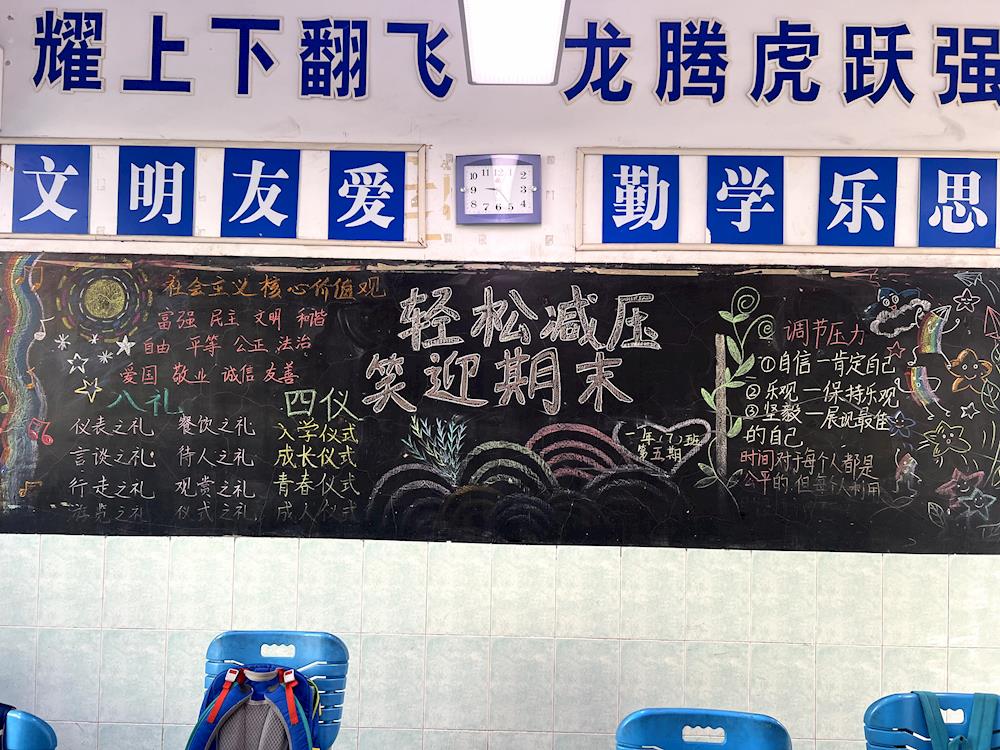 耀上下翻飞 龙腾虎跃强
文明友爱
勤学乐思
10 11 12 1 2
9 3
8 7 6 5 4
社会主义核心价值观
富强 民主 文明 和谐
自由 平等 公正 法治
爱国 敬业 诚信 友善
八礼
仪表之礼 餐饮之礼
言谈之礼 待人之礼
行走之礼 观赏之礼
游览之礼 仪式之礼
四仪
入学仪式
成长仪式
青春仪式
成人仪式
轻松减压
笑迎期末
一年(7)班
第五期
调节压力
①自信一肯定自己
②乐观一保持乐观
③坚毅一展现最佳
的自己
时间对于每个人都是
公平的,但每个人利用